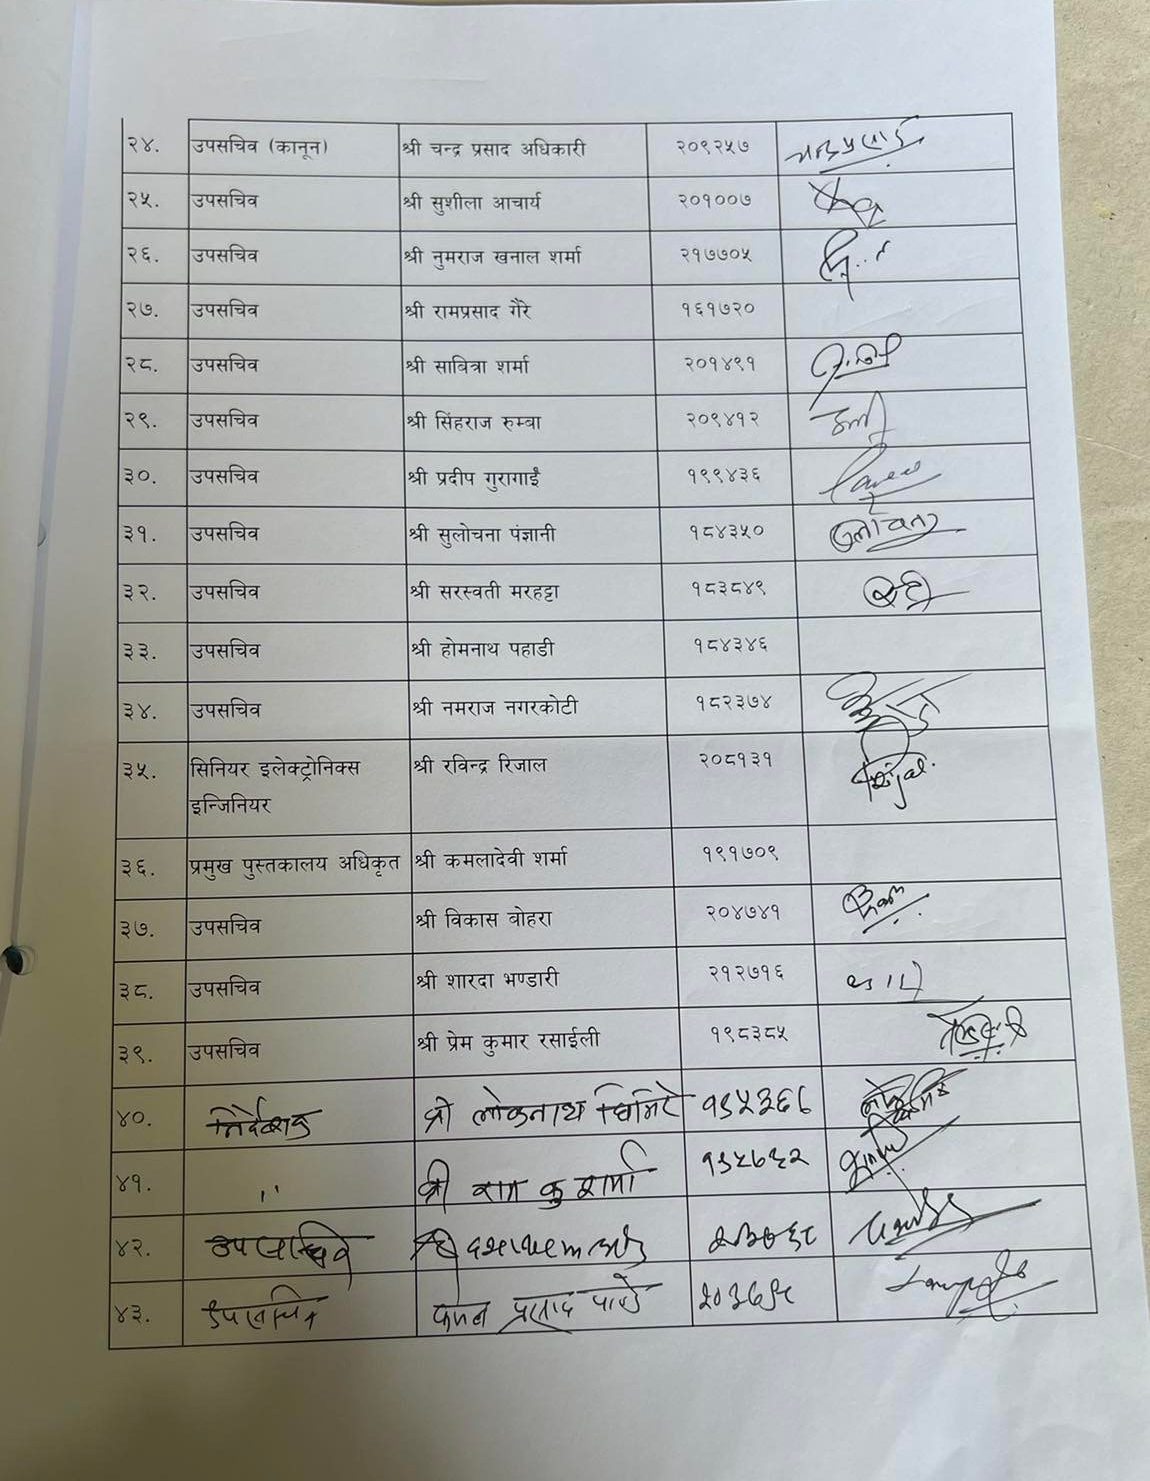 २४. उपसचिव (कानून) श्री चन्द्र प्रसाद अधिकारी २०९२५७
२५. उपसचिव श्री सुशीला आचार्य २०१००७
२६. उपसचिव श्री नुमराज खनाल शर्मा २१७७०५
२७. उपसचिव श्री रामप्रसाद गैरे १६१७२०
२८. उपसचिव श्री सावित्रा शर्मा २०१४९१
२९. उपसचिव श्री सिंहराज रुम्बा २०९४१२
३०. उपसचिव श्री प्रदीप गुरागाईं १९९४३६
३१. उपसचिव श्री सुलोचना पंज्ञानी १८४३५०
३२. उपसचिव श्री सरस्वती मरहट्टा १८३८४९
३३. उपसचिव श्री होमनाथ पहाडी १८४३४६
३४. उपसचिव श्री नमराज नगरकोटी १८२३७४
३५. सिनियर इलेक्ट्रोनिक्स श्री रविन्द्र रिजाल २०८१३१
इन्जिनियर
३६. प्रमुख पुस्तकालय अधिकृत श्री कमलादेवी शर्मा १९१७०९
३७. उपसचिव श्री विकास बोहरा २०४७४१
३८. उपसचिव श्री शारदा भण्डारी २१२७१६
३९. उपसचिव श्री प्रेम कुमार रसाईली १९८३८५
४०. निर्देशक श्री लोकनाथ घिमिरे
४१. " श्री राम कु शर्मा
४२. उपसचिव
४३. उपसचिव प्रसाद पाण्डे